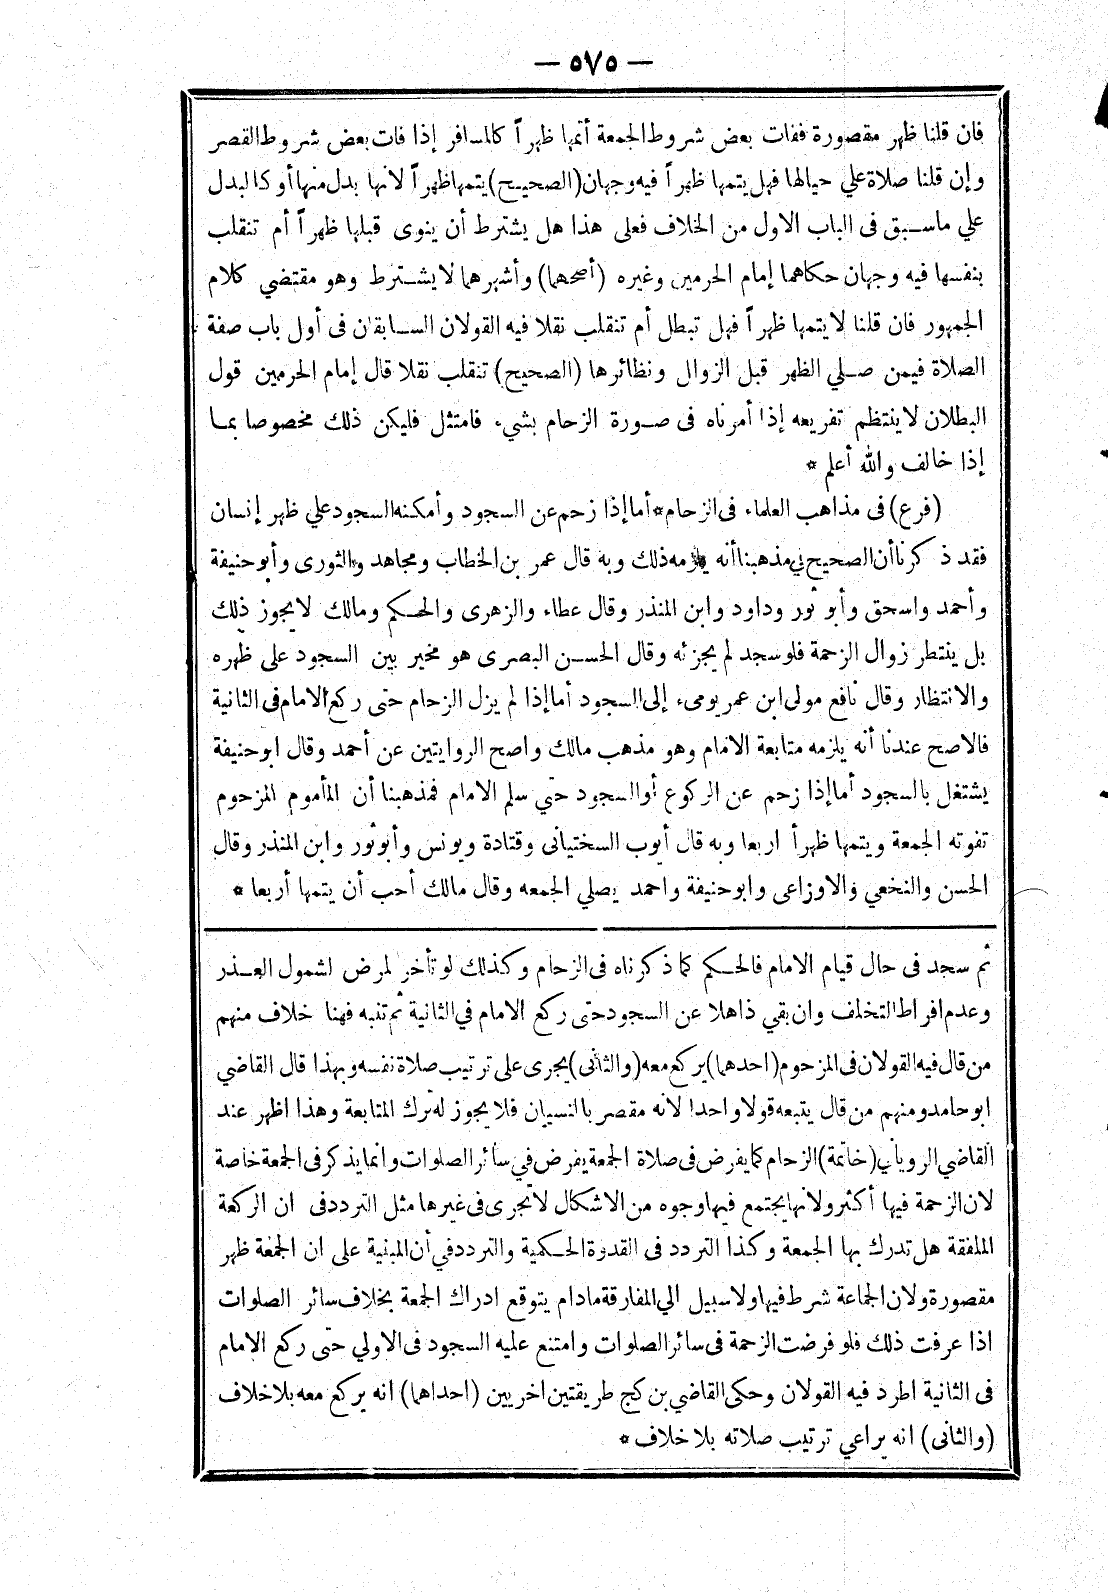 — ٥٧٥ —
فان قلنا ظهر مقصورة ففات بعض شروط الجمعة أتمها ظهراً كالمسافر إذا فات بعض شروط القصر
وإن قلنا صلاة علي حيالها فهل يتمها ظهراً فيه وجهان (الصحيح) يتمها ظهراً لانها بدل منها أو كالبدل
علي ماسبق فى الباب الاول من الخلاف فعلى هذا هل يشترط أن ينوى قبلها ظهراً أم تنقلب
بنفسها فيه وجهان حكاهما إمام الحرمين وغيره (أصحهما) وأشهرهما لايشترط وهو مقتضي كلام
الجمهور فان قلنا لايتمها ظهراً فهل تبطل أم تنقلب نفلا فيه القولان السابقان فى أول باب صفة
الصلاة فيمن صلي الظهر قبل الزوال ونظائرها (الصحيح) تنقلب نفلا قال إمام الحرمين قول
البطلان لاينتظم تفريعه إذا أمرناه فى صورة الزحام بشيء فامتثل فليكن ذلك مخصوصا بما
إذا خالف والله أعلم *
(فرع) فى مذاهب العلماء فى الزحام * أما إذا زحم عن السجود وأمكنه السجود علي ظهر إنسان
فقد ذكرنا أن الصحيح في مذهبنا أنه يلزمه ذلك وبه قال عمر بن الخطاب ومجاهد والثورى وأبوحنيفة
وأحمد واسحق وأبو ثور وداود وابن المنذر وقال عطاء والزهرى والحكم ومالك لايجوز ذلك
بل ينتظر زوال الزحمة فلو سجد لم يجزئه وقال الحسن البصرى هو مخير بين السجود على ظهره
والانتظار وقال نافع مولى ابن عمر يومىء إلى السجود أما إذا لم يزل الزحام حتى ركع الامام فى الثانية
فالاصح عندنا أنه يلزمه متابعة الامام وهو مذهب مالك واصح الروايتين عن أحمد وقال ابوحنيفة
يشتغل بالسجود أما إذا زحم عن الركوع أو السجود حتي سلم الامام فمذهبنا أن المأموم المزحوم
تفوته الجمعة ويتمها ظهراً اربعا وبه قال أيوب السختيانى وقتادة ويونس وأبوثور وابن المنذر وقال
الحسن والنخعي والاوزاعى وابوحنيفة واحمد يصلي الجمعه وقال مالك أحب أن يتمها أربعا *
ثم سجد فى حال قيام الامام فالحكم كما ذكرناه فى الزحام وكذلك لو تأخر لمرض لشمول العذر
وعدم افراط التخلف وان بقي ذاهلا عن السجود حتى ركع الامام في الثانية ثم تنبه فهنا خلاف منهم
من قال فيه القولان فى المزحوم (احدهما) يركع معه (والثانى) يجرى على ترتيب صلاة نفسه وبهذا قال القاضي
ابو حامد ومنهم من قال يتبعه قولا واحدا لانه مقصر بالنسيان فلا يجوز له ترك المتابعة وهذا اظهر عند
القاضي الروياني (خاتمة) الزحام كما يفرض فى صلاة الجمعة يفرض في سائر الصلوات وانما يذكر فى الجمعة خاصة
لان الزحمة فيها أكثر ولانها يجتمع فيها وجوه من الاشكال لا تجرى فى غيرها مثل التردد فى ان الركعة
الملفقة هل تدرك بها الجمعة وكذا التردد فى القدوة الحكمية والتردد في أن المبنية على ان الجمعة ظهر
مقصورة ولان الجماعة شرط فيها ولا سبيل الي المفارقة مادام يتوقع ادراك الجمعة بخلاف سائر الصلوات
اذا عرفت ذلك فلو فرضت الزحمة فى سائر الصلوات وامتنع عليه السجود فى الاولي حتى ركع الامام
فى الثانية اطرد فيه القولان وحكى القاضي بن كج طريقتين اخريين (احداهما) انه يركع معه بلا خلاف
(والثانى) انه يراعي ترتيب صلاته بلا خلاف *